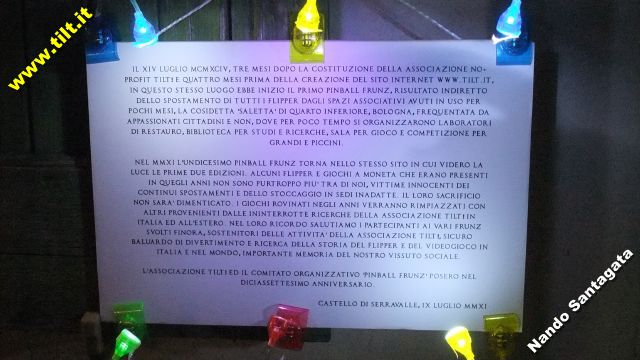 www.tilt.it
IL XIV LUGLIO MCMXCIV, TRE MESI DOPO LA COSTITUZIONE DELLA ASSOCIAZIONE NO-
PROFIT TILT! E QUATTRO MESI PRIMA DELLA CREAZIONE DEL SITO INTERNET WWW.TILT.IT,
IN QUESTO STESSO LUOGO EBBE INIZIO IL PRIMO PINBALL FRUNZ, RISULTATO INDIRETTO
DELLO SPOSTAMENTO DI TUTTI I FLIPPER DAGLI SPAZI ASSOCIATIVI AVUTI IN USO PER
POCHI MESI, LA COSIDETTA 'SALETTA' DI QUARTO INFERIORE, BOLOGNA, FREQUENTATA DA
APPASSIONATI CITTADINI E NON, DOVE PER POCO TEMPO SI ORGANIZZARONO LABORATORI
DI RESTAURO, BIBLIOTECA PER STUDI E RICERCHE, SALA PER GIOCO E COMPETIZIONE PER
GRANDI E PICCINI.
NEL MMXI L'UNDICESIMO PINBALL FRUNZ TORNA NELLO STESSO SITO IN CUI VIDERO LA
LUCE LE PRIME DUE EDIZIONI. ALCUNI FLIPPER E GIOCHI A MONETA CHE ERANO PRESENTI
IN QUEGLI ANNI NON SONO PURTROPPO PIU' TRA DI NOI, VITTIME INNOCENTI DEI
CONTINUI SPOSTAMENTI E DELLO STOCCAGGIO IN SEDI INADATTE. IL LORO SACRIFICIO
NON SARA' DIMENTICATO. I GIOCHI ROVINATI NEGLI ANNI VERRANNO RIMPIAZZATI CON
ALTRI PROVENIENTI DALLE ININTERROTTE RICERCHE DELLA ASSOCIAZIONE TILT! IN
ITALIA ED ALL'ESTERO. NEL LORO RICORDO SALUTIAMO I PARTECIPANTI AI VARI FRUNZ
SVOLTI FINORA, SOSTENITORI DELLE ATTIVITA' DELLA ASSOCIAZIONE TILT!, SICURO
BALUARDO DI DIVERTIMENTO E RICERCA DELLA STORIA DEL FLIPPER E DEL VIDEOGIOCO IN
ITALIA E NEL MONDO, IMPORTANTE MEMORIA DEL NOSTRO VISSUTO SOCIALE.
L'ASSOCIAZIONE TILT! ED IL COMITATO ORGANIZZATIVO 'PINBALL FRUNZ' POSERO NEL
DICIASSETTESIMO ANNIVERSARIO.
CASTELLO DI SERRAVALLE, IX LUGLIO MMXI
Nando Santagata